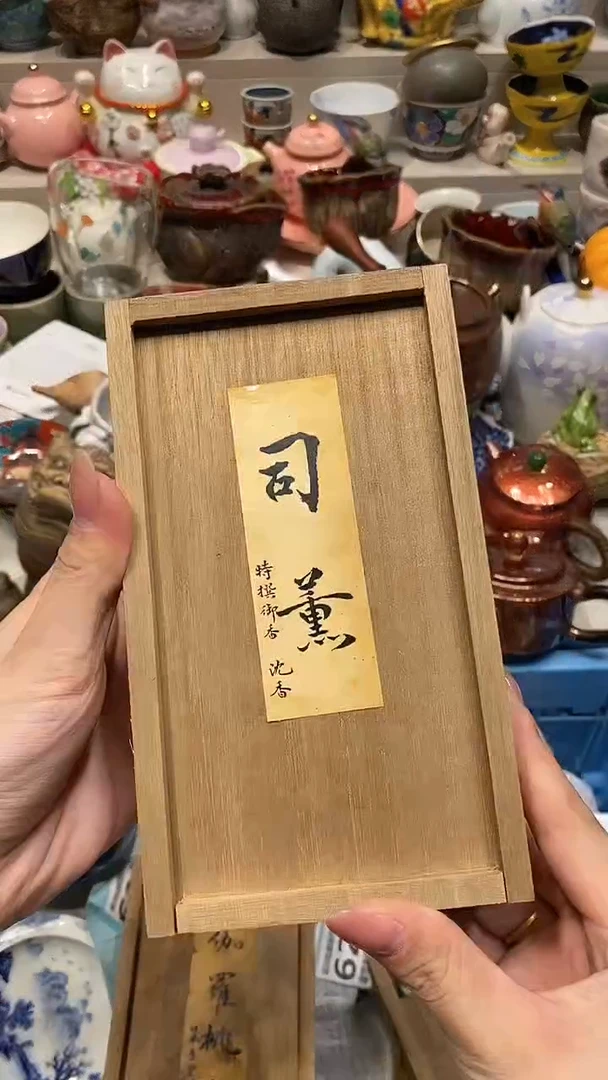 司薰
特撰御香 沈香
伽羅
29